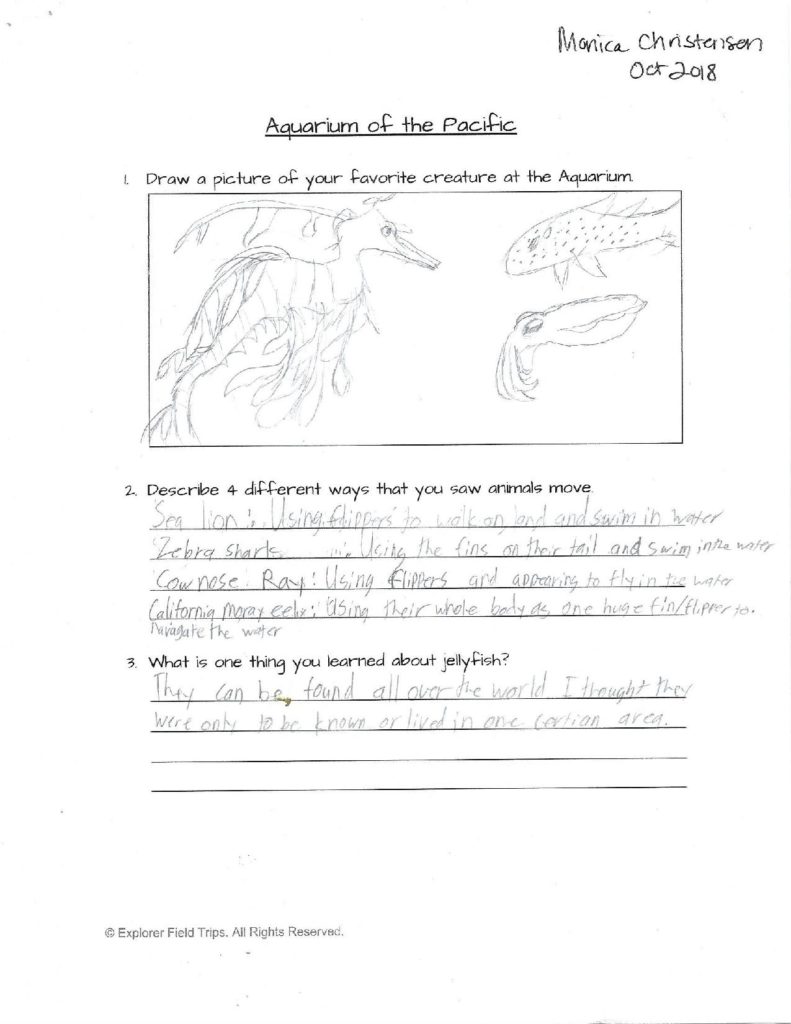 Monica Christensen
Oct 2018
Aquarium of the Pacific
1. Draw a picture of your favorite creature at the Aquarium.
2. Describe 4 different ways that you saw animals move.
Sea lion: Using flippers to walk on land and swim in water
Zebra shark : Using the fins on their tail and swim in the water
Cow nose Ray: Using flippers and appearing to fly in the water
California moray eel: Using their whole body as one huge fin/flipper to.
navagate the water
3. What is one thing you learned about jellyfish?
They can be, found all over the world I thought they
were only to be known or lived in one certian area.
© Explorer Field Trips. All Rights Reserved.